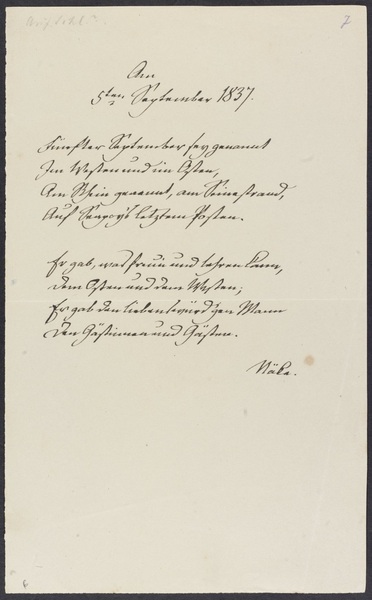 7
Am
5ten September 1837.
Fünfter September sey genannt
Im Westen und im Osten,
Am Rhein genannt, am Seinestrand,
Auf Seapoy's letztem Posten.
Er gab, was freun und lehren kann,
Dem Osten und dem Westen;
Er gab den liebenswürd'gen Mann
Den Gästinnen und Gästen.
Näke.